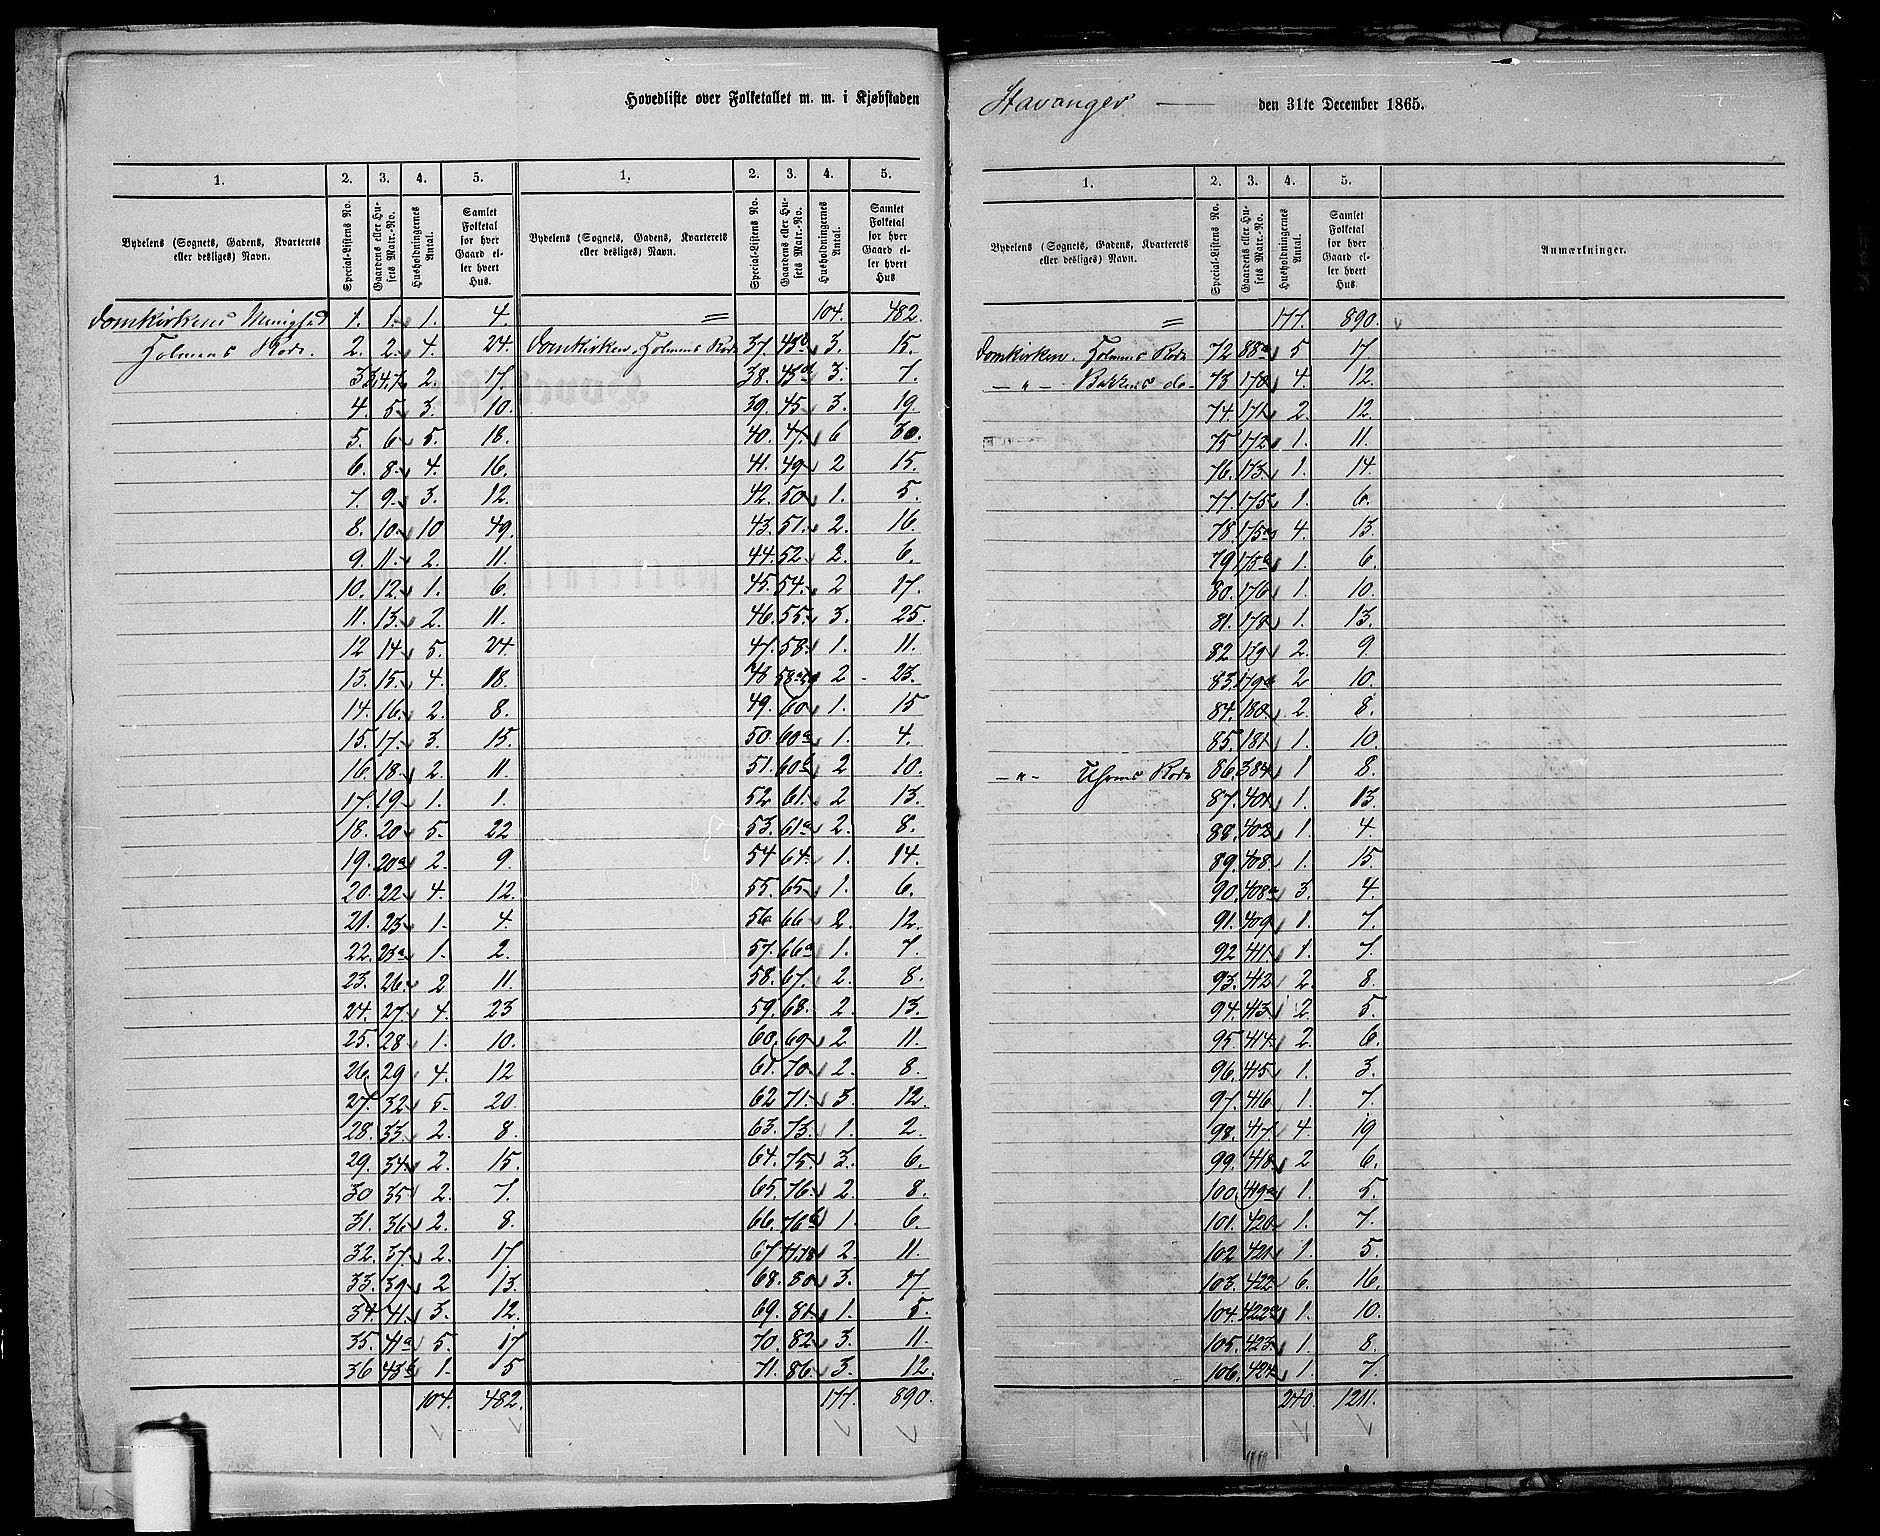 Hovedliste over Folketallet m. m. i Kjøbstaden Stavanger — den 31te December 1865.
1. 2. 3. 4. 5. 1. 2. 3. 4. 5.
Bydelens (Sognets, Gadens, Kvarterets eller desliges) Navn. Special-Listens No. Gaardens eller Husets Matr.-No. Husholdningernes Antal. Samlet Folketal for hver Gaard eller hvert Hus. Bydelens (Sognets, Gadens, Kvarterets eller desliges) Navn. Special-Listens No. Gaardens eller Husets Matr.-No. Husholdningernes Antal. Samlet Folketal for hver Gaard eller hvert Hus.
Domkirkens Menighed 1. 1. 1. 4.
Holmens Rode. 2. 2. 4. 24.
3. 3,4,7 2. 17.
4. 5 3. 10.
5. 6 5. 18.
6. 8 4. 16.
7. 9. 3. 12.
8. 10 10 49.
9. 11. 2. 11.
10. 12. 1. 6.
11. 13. 2. 11.
12 14 5. 24.
13. 15. 4. 18.
14. 16. 2. 8.
15. 17. 3. 15.
16. 18. 2. 11.
17. 19. 1. 1.
18. 20 5. 22
19. 20a 2. 9.
20. 22 4. 12.
21. 23 1. 4.
22. 23a 1. 2.
23. 26. 2 11.
24. 27. 4. 23
25. 28 1. 10.
26. 29 4. 12
27. 32 5. 20.
28. 33. 2. 8.
29. 34 2. 15.
30 35 2. 7.
31. 36 2. 8.
32. 37. 2. 17.
33. 39 2 13.
34. 41. 3. 12.
35. 41a 5. 17
36 43 1. 5
104. 482.
= 104. 482.
Domkirken. Holmens Rode 37. 43b 3. 15.
38. 43d 3. 7.
39. 45. 3. 19.
40. 47. 6 30.
41. 49 2 15.
42. 50 1. 5.
43. 51. 2. 16.
44. 52 2. 6.
45. 54. 2 17.
46. 55. 3. 25.
47. 58. 1. 11.
48 2 23.
49. 60 1. 15
50. 60a 1. 4.
51. 60b 2 10.
52 61. 2 13.
53. 61a 2. 8.
54 64. 1. 14.
55. 65 1. 6.
56 66 2. 12.
57. 66a 1. 7.
58. 67. 2. 8.
59. 68. 2. 13.
60. 69 2 11.
61. 70. 2. 8.
62 71. 3. 12.
63. 73. 1. 2.
64. 75. 3. 6.
65. 76 2. 8.
66. 76b 1. 6.
67 77.78 2. 11.
68. 80 3. 17.
69. 81 1. 5.
70. 82 3. 11.
71. 86 3. 12.
177. 890.
1. 2. 3. 4. 5.
Bydelens (Sognets, Gadens, Kvarterets eller desliges) Navn. Special-Listens No. Gaardens eller Husets Matr.-No. Husholdningernes Antal. Samlet Folketal for hver Gaard eller hvert Hus. Anmærkninger.
= 177. 890.
Domkirken. Holmens Rode 72 88a 5 17
— „ — Bakkens do- 73 170 4. 12.
74. 171 2. 12.
75 172 1. 11.
76. 173. 1. 14.
77. 175 1. 6.
78. 175a 4. 13.
79 175b 1. 6.
80. 176 1. 10.
81. 178 1. 13.
82 179 2. 9.
83. 179a 2 10.
84. 180 2. 8.
85. 181 1. 10.
— „ — Rode 86. 384 1 8.
87. 401 1. 13.
88. 402 1. 4.
89. 408 1. 15.
90. 408a 3. 4.
91. 409 1. 7.
92 411. 1. 7.
93. 412 2. 8.
94. 413 2. 5.
95. 414. 2. 6.
96. 415 1. 3.
97. 416 1. 7.
98. 417. 4. 19
99. 418 2 6.
100. 419a 1. 5.
101. 420 1. 7.
102. 421 1. 5.
103. 422 6. 16.
104. 422a 1. 10.
105. 423. 1. 8.
106. 424 1. 7.
240. 1211.